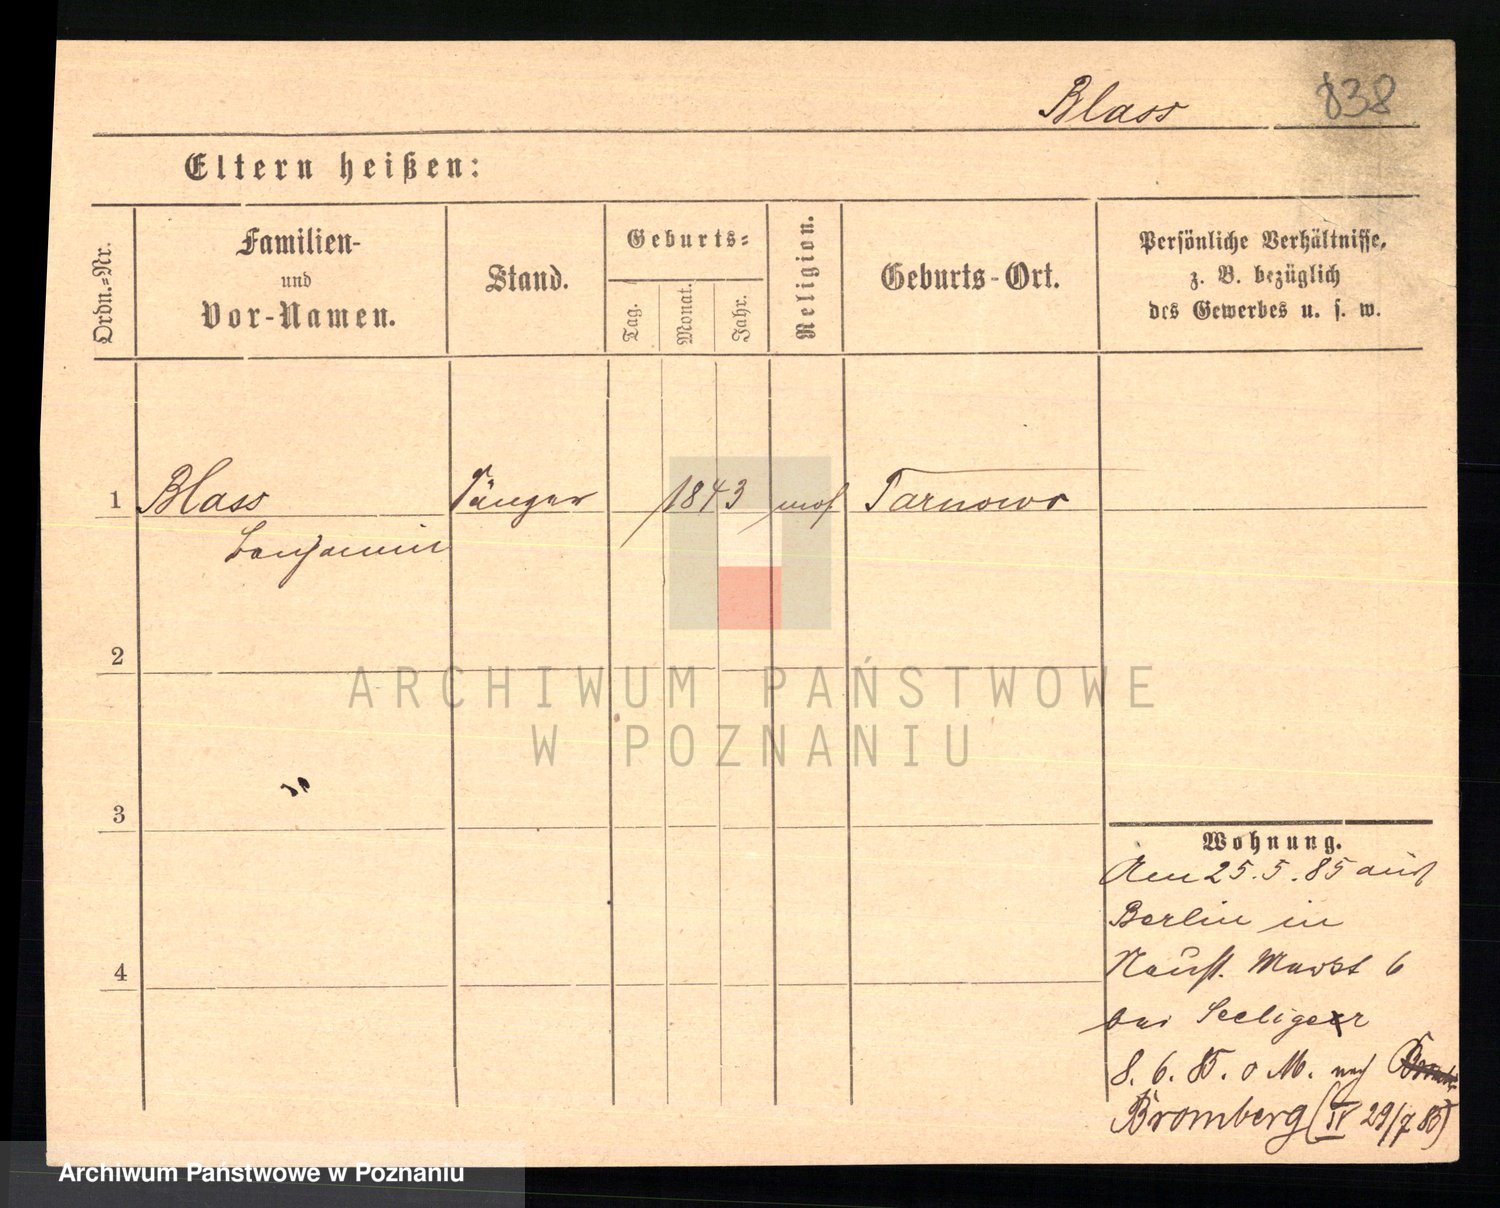 Blass
838
Eltern heißen:
Ordn.-Nr.
Familien-
und
Vor-Namen.
Stand.
Geburts-
Tag.
Monat.
Jahr.
Religion.
Geburts-Ort.
Persönliche Verhältnisse,
z. B. bezüglich
des Gewerbes u. s. w.
1 Blass Sänger 1843 mos Tarnowo
Benjamin
2
ARCHIWUM PAŃSTWOWE
W POZNANIU
3
Wohnung.
Am 25.5.85 aus
Berlin in
Neust. Markt 6
bei Seeliger
4
8. 6. 85. o M. nach
Bromberg (IV 29/7 85)
Archiwum Państwowe w Poznaniu